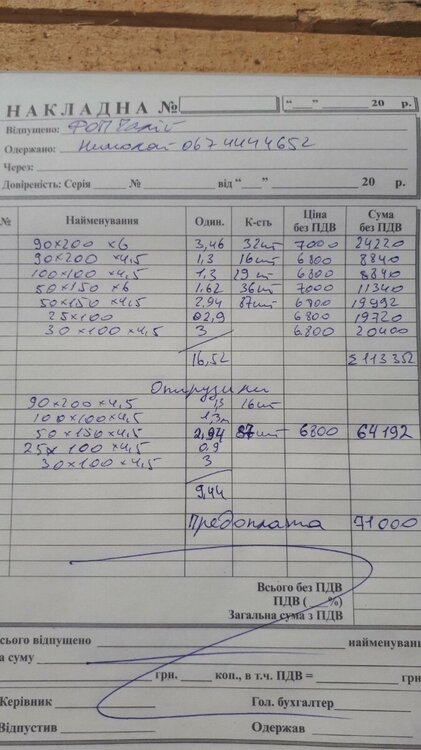 НАКЛАДНА №
"___" ___ 20 р.
Відпущено: ФОП
Одержано: Николай 067 4444652
Через:
Довіреність: Серія ___ № ___ від "___" ___ 20 р.
№ Найменування Один. К-сть Ціна без ПДВ Сума без ПДВ
90×200 ×6 3,46 32шт 7000 24220
90×200 ×4,5 1,3 16шт 6800 8840
100×100 ×4,5 1,3 29шт 6800 8840
50×150 ×6 1,62 36шт 7000 11340
50×150 ×4,5 2,94 87шт 6800 19992
25×100 2,9 6800 19720
30×100 ×4,5 3 6.800 20400
16,52 Σ 113 352
Отгрузили
90×200×4,5 1,3 16шт
100×100×4,5 1,3
50×150×4,5 2,94 87шт 6800 64192
25×100×4,5 0,9
30×100×4,5 3
9,44
Предоплата 71000
Всього без ПДВ
ПДВ (___%)
Загальна сума з ПДВ
сього відпущено ___ найменуван
а суму
грн. ___ коп., в т.ч. ПДВ = ___ грн
Керівник ___ Гол. бухгалтер
Відпустив ___ Одержав